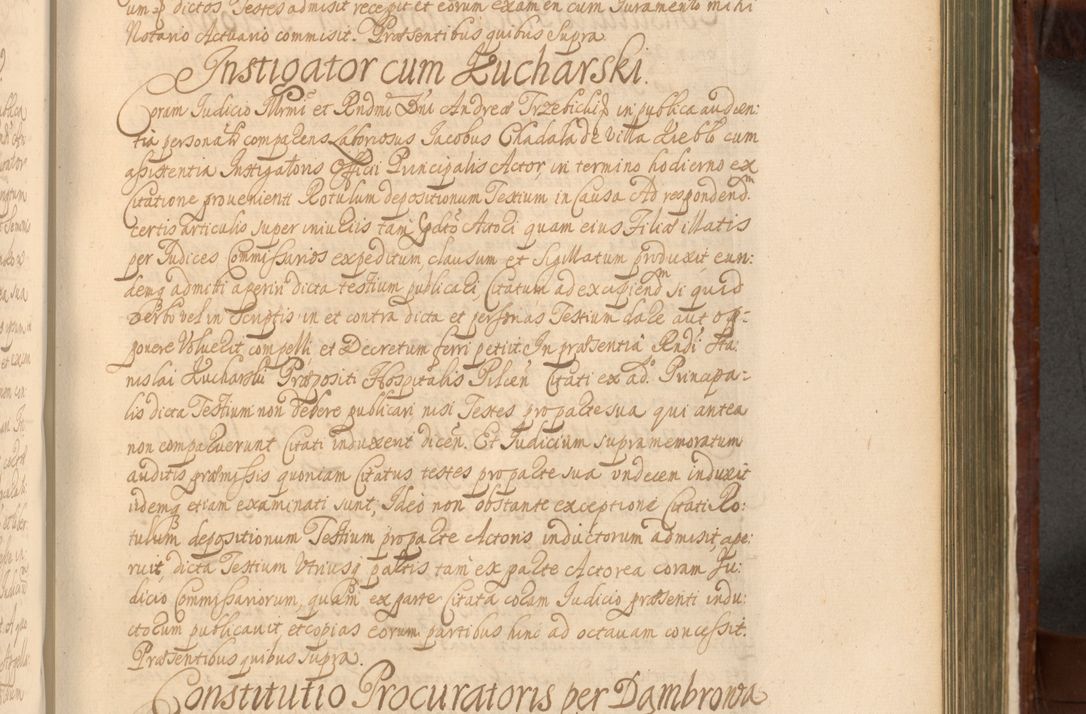 um dictos Testes admisit recepit et eorum examen cum Juramento mihi
Notario Actuario commisit. Præsentibus quibus Supra
Instigator cum Zucharski.
Coram Judicio Illrmi et Rndmi Dni Andreæ Trzebicki in publica audien:
tia personalr comparens Laboriosus Jacobus Chadala de Villa cum
assistentia Instigatoris Officii Principalis Actor, in termino hodierno ex
Citatione provenienti Rotulum depositionum Testium in Causa Ad respondend
certis articulis super iniuriis tam Spdto Actori quam eius Filiæ illatis
per Judices Commissarios expeditum, clausum et Sigillatum produxit, eun:
demq admitti aperiri dicta testium publicari, Citatum ad excipiend si quid
verbo vel in Scriptis in et contra dicta et personas Testium dare aut op-
ponere Voluerit, compelli, et Decretum ferri petiit: In præsentia Rndi Sta:
nislai Zucharski Præpositi Hospitalis Pilcen Citati ex ad. Principa-
lis dicta Testium non debere publicari nisi Testes pro parte sua qui antea
non comparuerunt Citati induxerit dicen. Et Judicium supramemoratum
auditis præmissis quoniam Citatus testes pro parte sua undecem induxit
iidemq etiam examinati sunt, Ideo non obstante exceptione Citati Ro:
tulum depositionum Testium pro parte Actoris inductorum admisit, ape:
ruit, dicta Testium Utriusq partis tam ex parte Actorea coram Ju:
dicio Commissariorum, quam ex parte Citata coram Judicio præsenti indu:
ctorum publicavit et copias eorum partibus hinc ad octavam concessit.
Præsentibus quibus supra.
Constitutio Procuratoris per Dambrowa